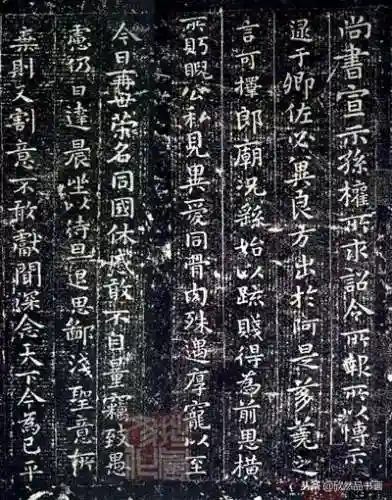 尚書宣示孫權所求詔令所報所以博示
逮于卿佐必冀良方出於阿是芻蕘之
言可擇郎廟況繇始以疏賤得為前恩橫
所眄睨公私見異愛同骨肉殊遇厚寵以至
今日再世榮名同國休慼敢不自量竊致愚
慮仍日達晨坐以待旦退思鄙淺聖意所
棄則又割意不敢獻聞深念天下今為已平
头条@欣然品书画